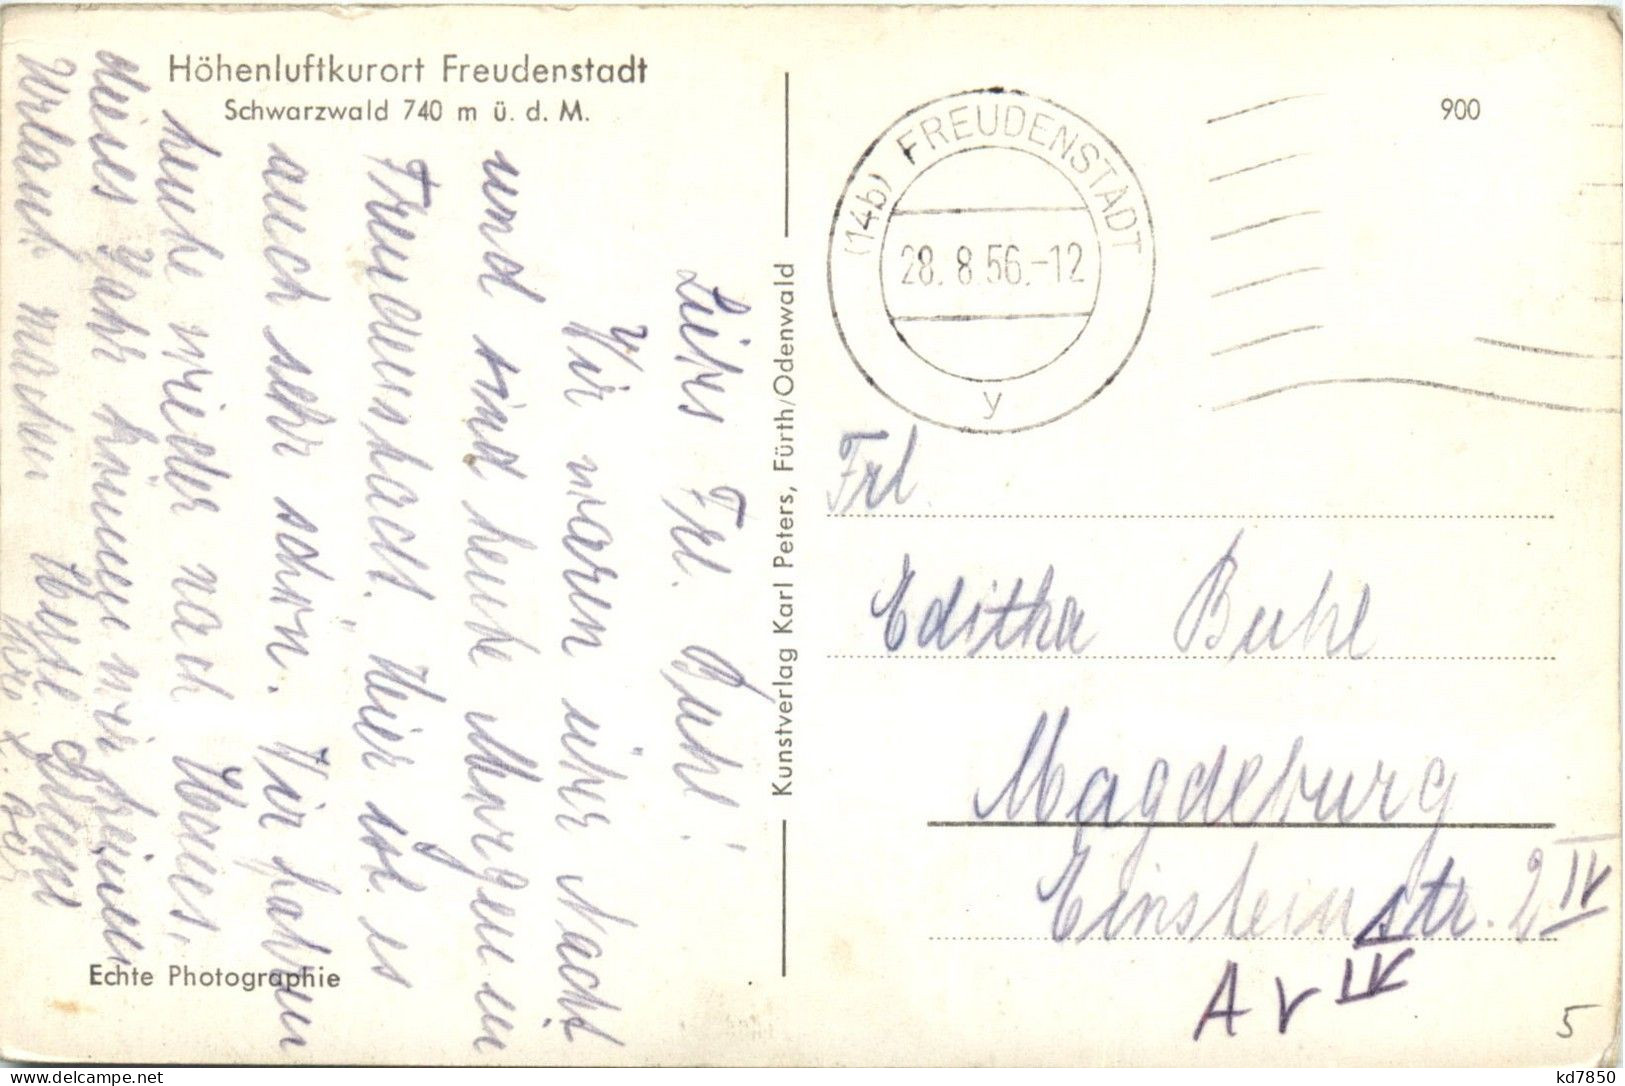 Höhenluftkurort Freudenstadt
Schwarzwald 740 m ü. d. M.
Liebs Frl. Buhl!
Wir waren über Nacht
und sind heute Morgen in
Freudenstadt. Hier ist es
auch sehr schön. Wir fahren
heute wieder nach Hause,
dieses Jahr können wir keinen
Urlaub machen
Echte Photographie
Kunstverlag Karl Peters, Fürth/Odenwald
(14b) FREUDENSTADT
28. 8. 56.-12
y
900
Frl.
Editha Buhl
Magdeburg
Einsteinstr. 2 IV
A r IV
5
kd7850